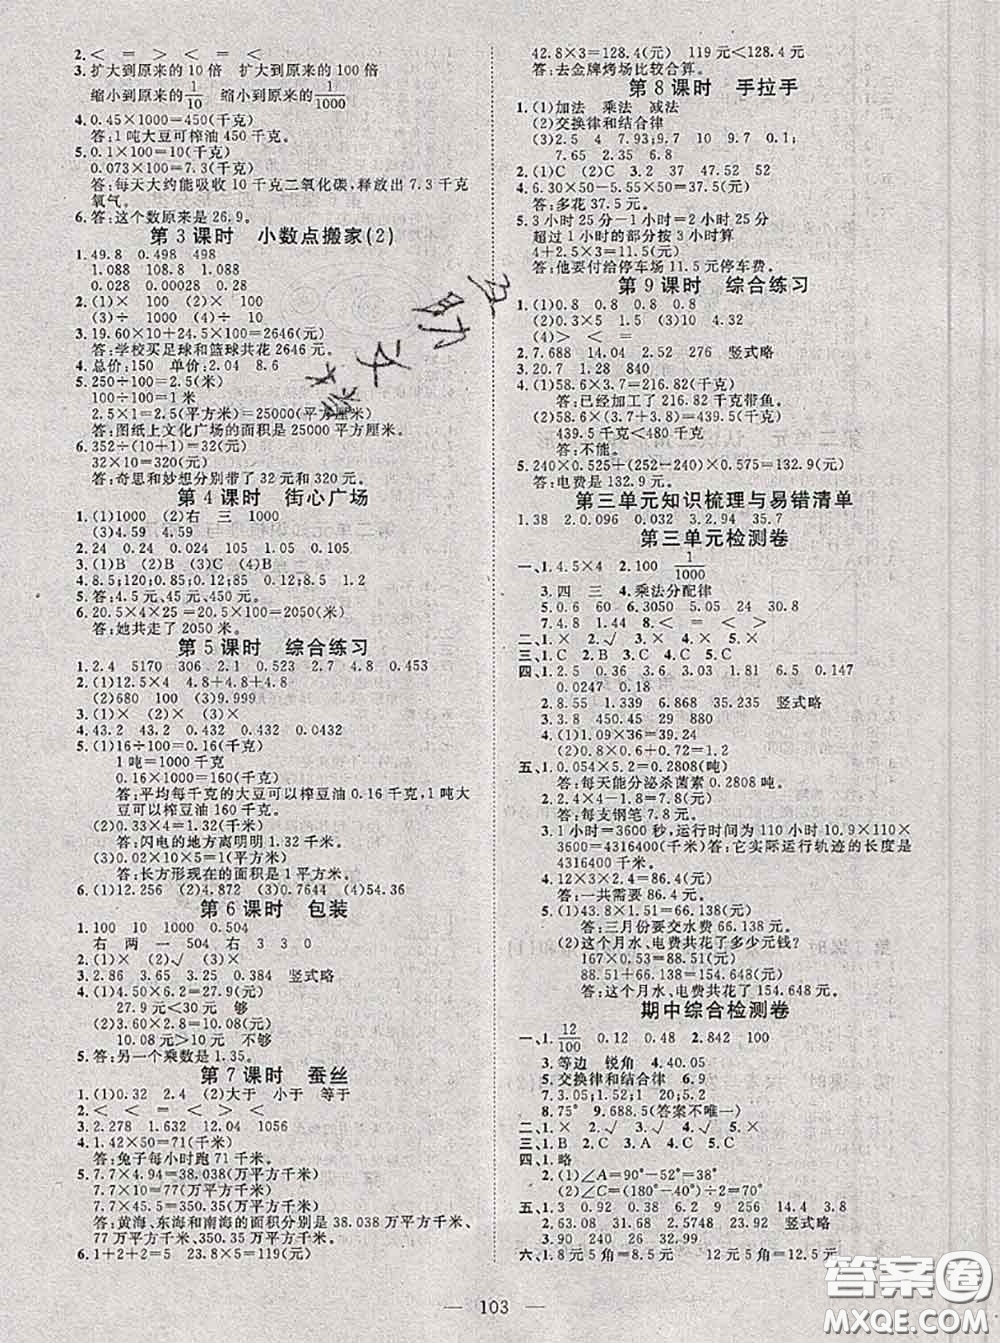 2.＜　＝　＞　＜　＝　＜
3.扩大到原来的10倍　扩大到原来的100倍
缩小到原来的1/10　缩小到原来的1/1000
4.0.45×1000=450(千克)
答:1吨大豆可榨油450千克。
5.0.1×100=10(千克)
0.073×100=7.3(千克)
答:每天大约能吸收10千克二氧化碳,释放出7.3千克
氧气。
6.答:这个数原来是26.9。
第3课时　小数点搬家(2)
1.49.8　0.498　498
1.088　108.8　0.1088
0.028　0.00028　0.28
2.(1)÷　100　(2)×　100
(3)÷　1000　(4)÷　10
3.19.60×10+24.5×100=2646(元)
答:学校买足球和篮球共花2646元。
4.总价:150　单价:2.04　8.6
5.250÷100=2.5(米)
100÷100=1米
2.5×1=2.5(平方米)=25000(平方厘米)
答:图纸上文化广场的面积是25000平方厘米。
6.352÷(10+1)=32(元)
32×10=320(元)
答:奇思和妙想分别带了32元和320元。
第4课时　街心广场
1.(1)1000　(2)右　三　1000
(3)4.59　(4)4.59
2.24　0.24　0.024　105　1.05　0.105
3.(1)B　(2)B　(3)C　(4)B
4.8.5;120;0.85;120;0.85;1.2
5.答:4.5元、45元、450元。
6.20.5×25×4=20.5×100=2050(米)
答:她共走了2050米。
第5课时　综合练习
1.2.4　5170　306　2.1　0.523　2.7　4.8　0.453
2.(1)12.5×4　4.8+4.8+4.8
(2)680　100　(3)9.999
3.(1)×　(2)×　(3)×
4.43.2　43.2　0.432　0.432　0.0432
5.(1)16÷100=0.16(千克)
1吨=1000千克
0.16×1000=160(千克)
答:平均每千克的大豆可以榨豆油0.16千克,1吨大
豆可以榨豆油160千克。
(2)0.33×4=1.32(千米)
答:闪电的地方离明明1.32千米。
(3)0.02×10×5=1(平方米)
答:长方形现在的面积是1平方米。
6.(1)12.256　(2)4.872　(3)0.7644　(4)54.36
第6课时　包装
1.100　10　1000　0.504
右　两　一　504　右　3　3　0
2.(1)×　(2)√　(3)×
3.2.86　3.65　3.25　0.384　竖式略
4.(1)4.50×6.2=27.9(元)
27.9元＜30元　够
(2)3.6×2.8=10.08(元)
10.08元＞10元　不够
5.答:另一个乘数是1.35。
第7课时　蚕丝
1.(1)0.32　2.4　(2)大于　小于　等于
2.＜　＜　＝　＞　＜　＝
3.2.278　1.632　12.04　1056
4.1.42×50=71(千米)
答:兔子每小时跑71千米。
5.7.7×4.94=38.038(万平方千米)
7.7×10=77(万平方千米)
7.7×45.5=350.35(万平方千米)
答:黄海、东海和南海的面积分别是38.038万平方千米、
77万平方千米、350.35万平方千米。
6.1+2+2=5　23.8×5=119(元)
42.8×3=128.4(元)　119元＜128.4元
答:去金牌烤场比较合算。
第8课时　手拉手
1.(1)加法　乘法　减法
(2)交换律和结合律
(3)2.5　4　7.93;9.9　10　9.7　0.1;
7.65　2.35　6.8
2.(1)C　(2)C　3.2　37　48　27.52
4.6.30×50-5.55×50=37.5(元)
答:多花37.5元。
5.3小时25分-1小时=2小时25分
超过1小时的部分按3小时算
4+2.5×3=11.5(元)
答:他要付给停车场11.5元停车费。
第9课时　综合练习
1.(1)0.8　0.8　0.8　0.8
(2)0.3×5　1.5　(3)0.18　0.9
(4)＞　＜　＝　＜
2.7.688　14.04　11.52　竖式略
3.20.7　1.128　840
4.(1)58.6×3.7=216.82(千克)
答:已经加工了216.82千克带鱼。
(2)58.6×(3.7+3.8)=439.5(千克)
439.5千克＜480千克
答:不能。
5.240×0.525+(252-240)×0.575=132.9(元)
答:电费是132.9元。
第三单元知识梳理与易错清单
1.38　2.0.096　0.032　3.2.94　35.7
第三单元检测卷
一、1.4.5×4　2.100　1/1000
3.四　三　4.乘法分配律
5.0.6　60　6.3050　5.05　24　30
7.0.63　8.＜　＝　＝　＞　＜　＞
二、1.×　2.√　3.×　4.×　5.×
三、1.C　2.A　3.B　4.C　5.C
四、1.2.5　0.36　3.6　3.8　1.5　6.5　0.147
0.0247　0.18
2.8.55　1.339　6.868　7.0305　竖式略
3.3.8　450.45　29　880
4.(1)1.09×36=39.24
(2)0.18×0.6÷0.09=1.2
五、1.0.054×5.2=0.2808(吨)
答:每天能分泌杀菌素0.2808吨。
2.2.4×4-1.8=7.8(元)
答:每支钢笔7.8元。
3.1小时=3600秒,运行时间为110小时 10.9×110×
3600=4316400(千米)答:它实际运行轨迹的长度是
4316400千米。
4.12×3×2.4=86.4(元)
答:一共需要86.4元。
5.(1)43.8×1.51=66.138(元)
答:三月份要交水费66.138元。
(2)这个月水、电费共花了多少元钱?
167×0.53=88.51(元)
88.51+66.138=154.648(元)
答:这个月水、电费共花了154.648元。
期中综合检测卷
一、1.12/100　0.12　0.48　2.842　100
3.等边　锐角　4.40.05
5.交换律和结合律　6.9
7.1.54　15.4　0.0154　0.154
8.75°　9.688.5(答案不唯一)
二、1.×　2.×　3.√　4.√　5.×
三、1.B　2.C　3.A　4.C　5.C
四、1.略
2.(1)∠A=90°-52°=38°
(2)∠C=(180°-40°)÷2=70°
五、1.3　0.92　0.38　6.2　9　256　0.5
2.63.08　31.86　2.507　23.92　竖式略
3.90　36　329.01　22.68
六、1.8元5角=8.5元　12元5角=12.5元
103
答案圈
MXQE.COM